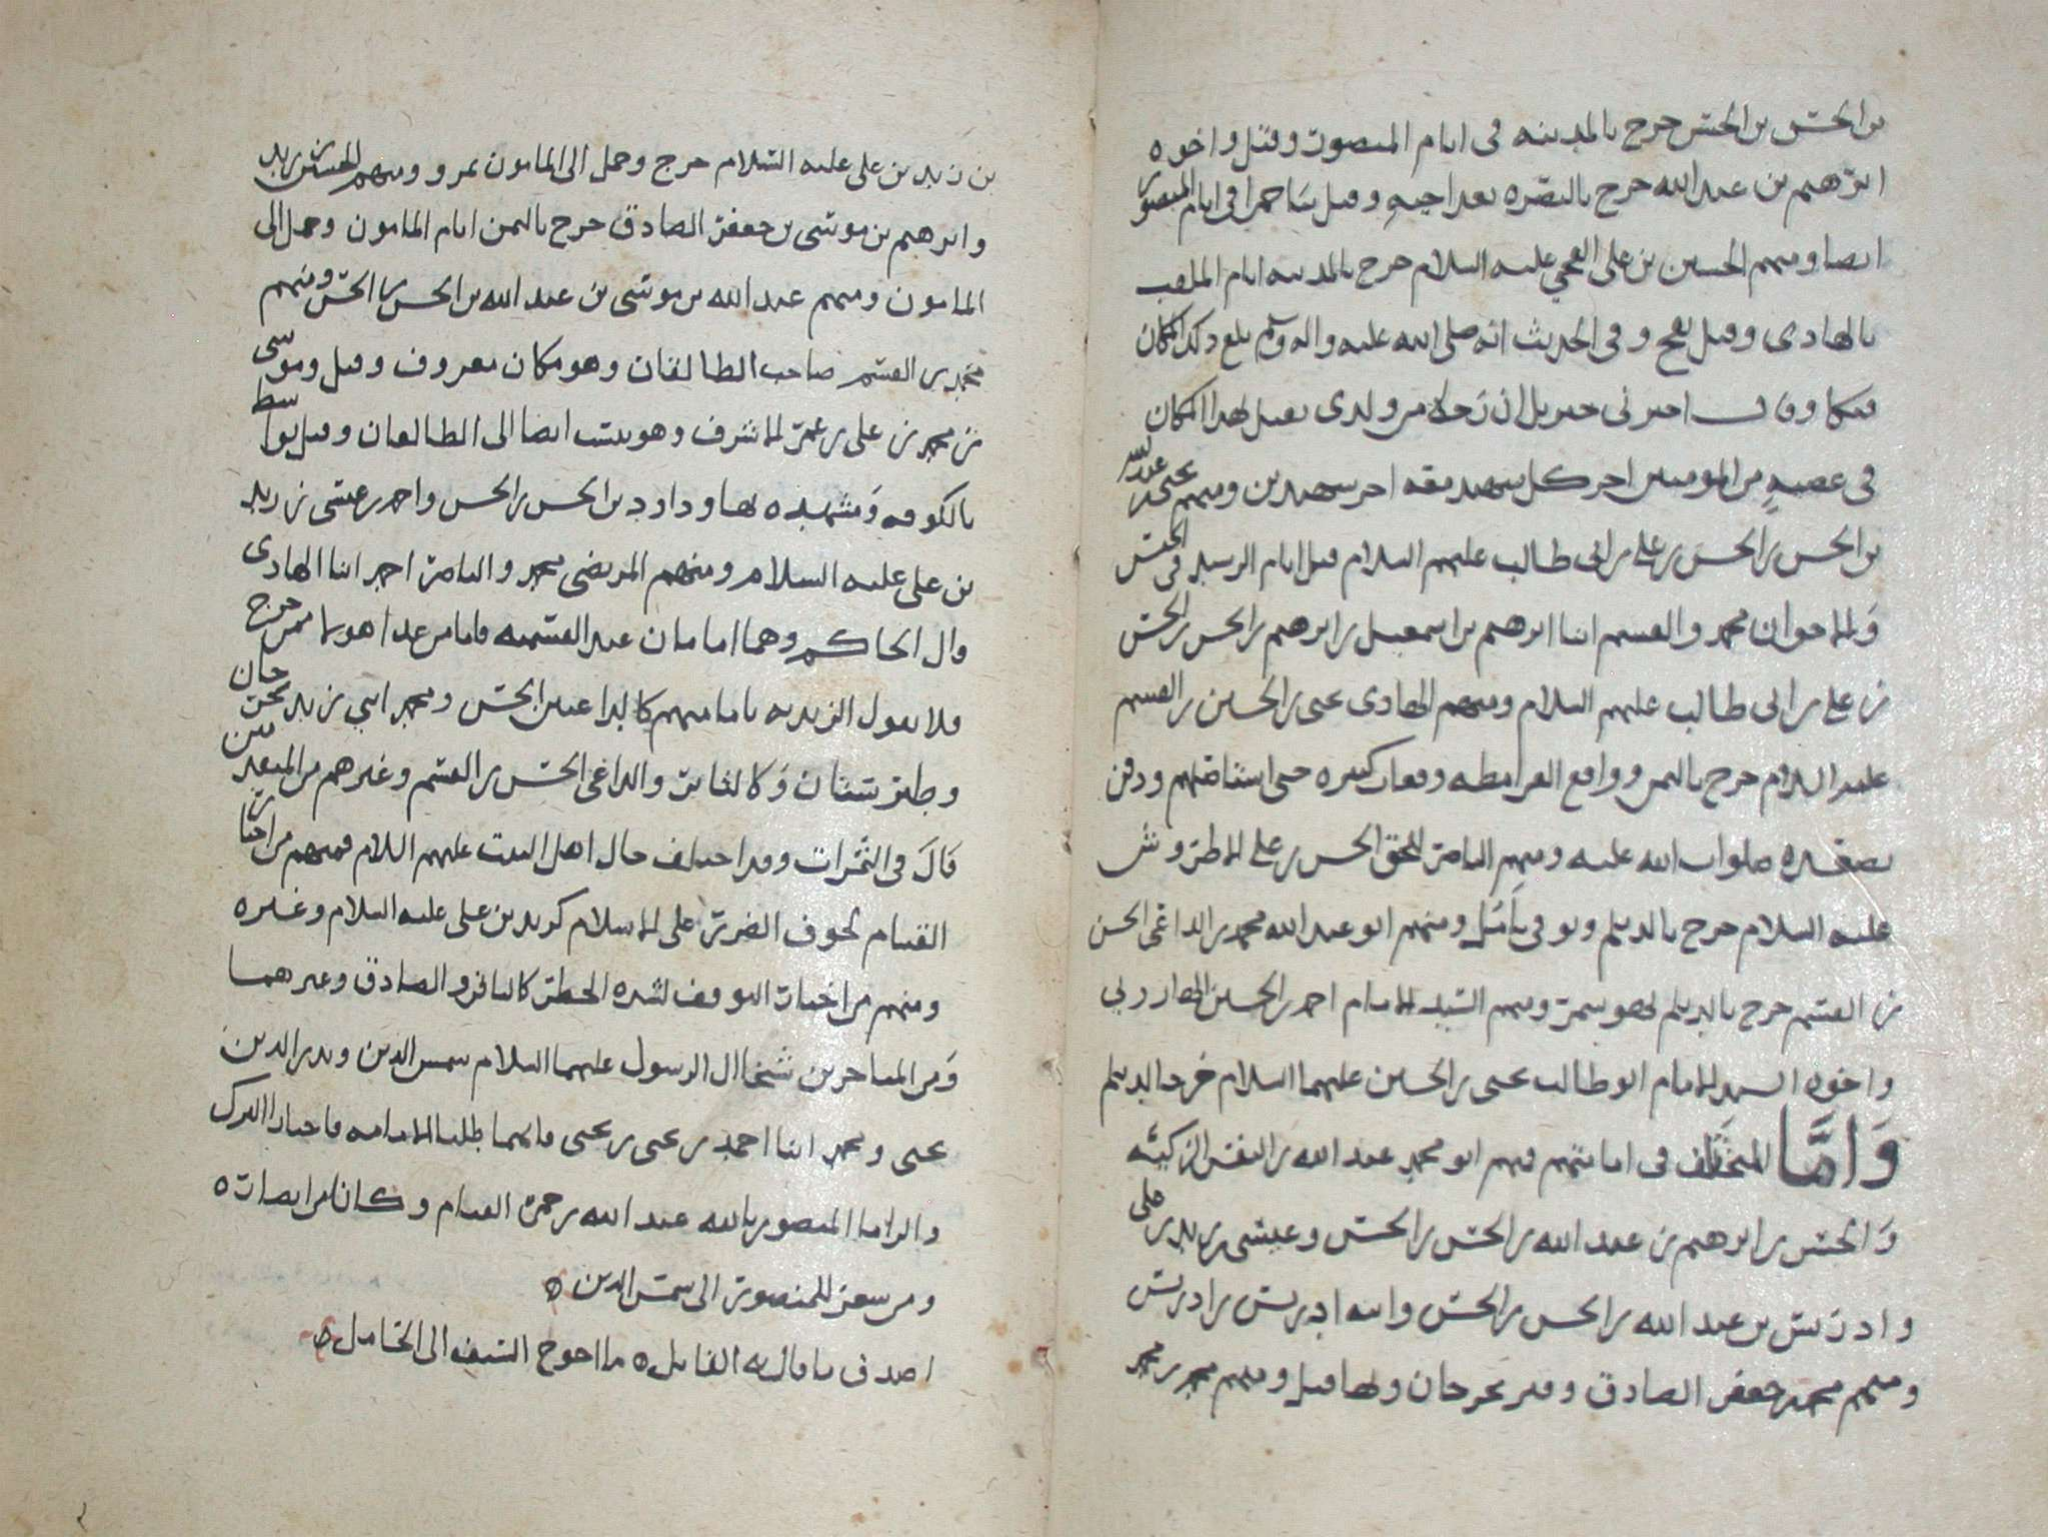 بن الحسن بن الحسن خرج بالمدينه فى ايام المنصور وقتل واخوه
ابرهيم بن عبد الله خرج بالبصره بعد اخيه وقتل بباخمرا فى ايام المنصور
ايضا ومنهم الحسين بن على الفخي عليه السلام خرج بالمدينه ايام الملقب
بالهادى وقتل بفخ وفى الحديث انه صلى الله عليه واله وسلم بلغ ذلك المكان
فبكا وقال اخبرنى جبريل ان رجلا من ولدى يقتل بهذا المكان
فى عصبةٍ من المومنين اجر كل شهيد معه اجر شهيدين ومنهم يحيى بن عبد الله
بن الحسن بن الحسن بن على بن ابى طالب عليهم السلام قتل ايام الرشيد فى الحبس
وَالاخوان محمد والقسم ابنا ابرهيم بن اسمعيل بن ابرهيم بن الحسن بن الحسن
بن على بن ابى طالب عليهم السلام ومنهم الهادى يحيى بن الحسين بن القسم
عليه السلام خرج باليمن وواقع القرامطه وقعات كبيره حتى استاصلهم ودفن
بصعده صلوات الله عليه ومنهم الناصر للحق الحسن بن على الاطروش
عليه السلام خرج بالديلم وتوفى بآمُل ومنهم ابو عبد الله محمد بن الداعى الحسن
بن القسم خرج بالديلم ومنهم السيد الامام احمد بن الحسين الهارونى
واخوه السيد الامام ابو طالب يحيى بن الحسين عليهما السلام خرجا بالديلم
وَامَّا المختَلَف فى امامتهم فهم ابو محمد عبد الله بن النفس الزكيّه
وَالحسن بن ابرهيم بن عبد الله بن الحسن بن الحسن وعيسى بن زيد بن على
وادريس بن عبد الله بن الحسن بن الحسن وابنه ادريس بن ادريس
ومنهم محمد بن جعفر الصادق وقبر بجرجان وبها قتل ومنهم محمد بن محمد
بن زيد بن على عليه السلام خرج وحمل الى المامون بمرو ومنهم الحسن بن زيد
وابرهيم بن موسى بن جعفر الصادق خرج باليمن ايام المامون وحمل الى
المامون ومنهم عبد الله بن موسى بن عبد الله بن الحسن بن الحسن ومنهم
محمد بن القسم صاحب الطالقان وهو مكان معروف وقتل وموسى
بن محمد بن على بن عمر الاشرف وهو ينسب ايضا الى الطالقان وقتل بواسط
بالكوفه وَمشهده بها وداود بن الحسن بن الحسن واحمد بن عيسى بن زيد
بن على عليه السلام ومنهم المرتضى محمد والناصر احمد ابنا الهادى
وال الحاكم وهما امامان عند القسميه فاما من عدا هولا ممن خرج
فلا يقول الزيديه بامامتهم كالداعيين الحسن ومحمد ابني زيد بجرجان
وطبرستان وَكالثاير والداعى الحسن بن القسم وغيرهم من المتقدمين
قَالَ فى الثمرات وقد اختلف حال اهل البيت عليهم السلام فمنهم من اختار
القيام لخوف الضرر على الاسلام كزيد بن على عليه السلام وغيره
ومنهم من اختار التوقف لشده الخطر كالباقر والصادق وغيرهما
وَمن المتاخرين شيخا ال الرسول عليهما السلام شمس الدين وبدر الدين
يحيى ومحمد ابنا احمد بن يحيى بن يحيى فانهما طلبا للامامه فاختارا الترك
والزما المنصور بالله عبد الله بن حمزه القيام وكانا من انصاره
ومن شعر للمنصور الى شمس الدين
اصدق ما قال به القايل ما احوج السيف الى الحامل